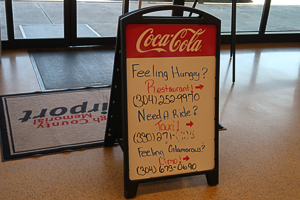 Coca-Cola
Feeling Hungry?
Restaurant
(304) 252-9970
Need A Ride?
Taxi!
Feeling Glamorous?
Limo!
(304) 673-0690
gh County
Memorial
irport